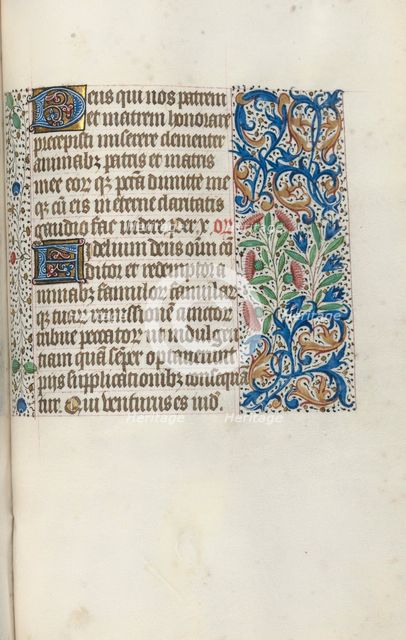 Deus qui nos patrem
et matrem honorare
precepisti miserere clementer
animabꝫ patris et matris
mee eorqꝫ pctā dimitte me
qꝫ cū eis in eterne claritatis
gaudio fac videre Per x or
Fidelium deus oīm cō
ditor et redemptor a
nimabꝫ famulor famular
qꝫ tuarꝫ remissionē cunctor
tribue peccator ut indulgen
tiam quā semper optauerunt
pijs supplicationibꝫ consequā
tur. Qui venturus es iud.
heritage
Heritage
Heritage